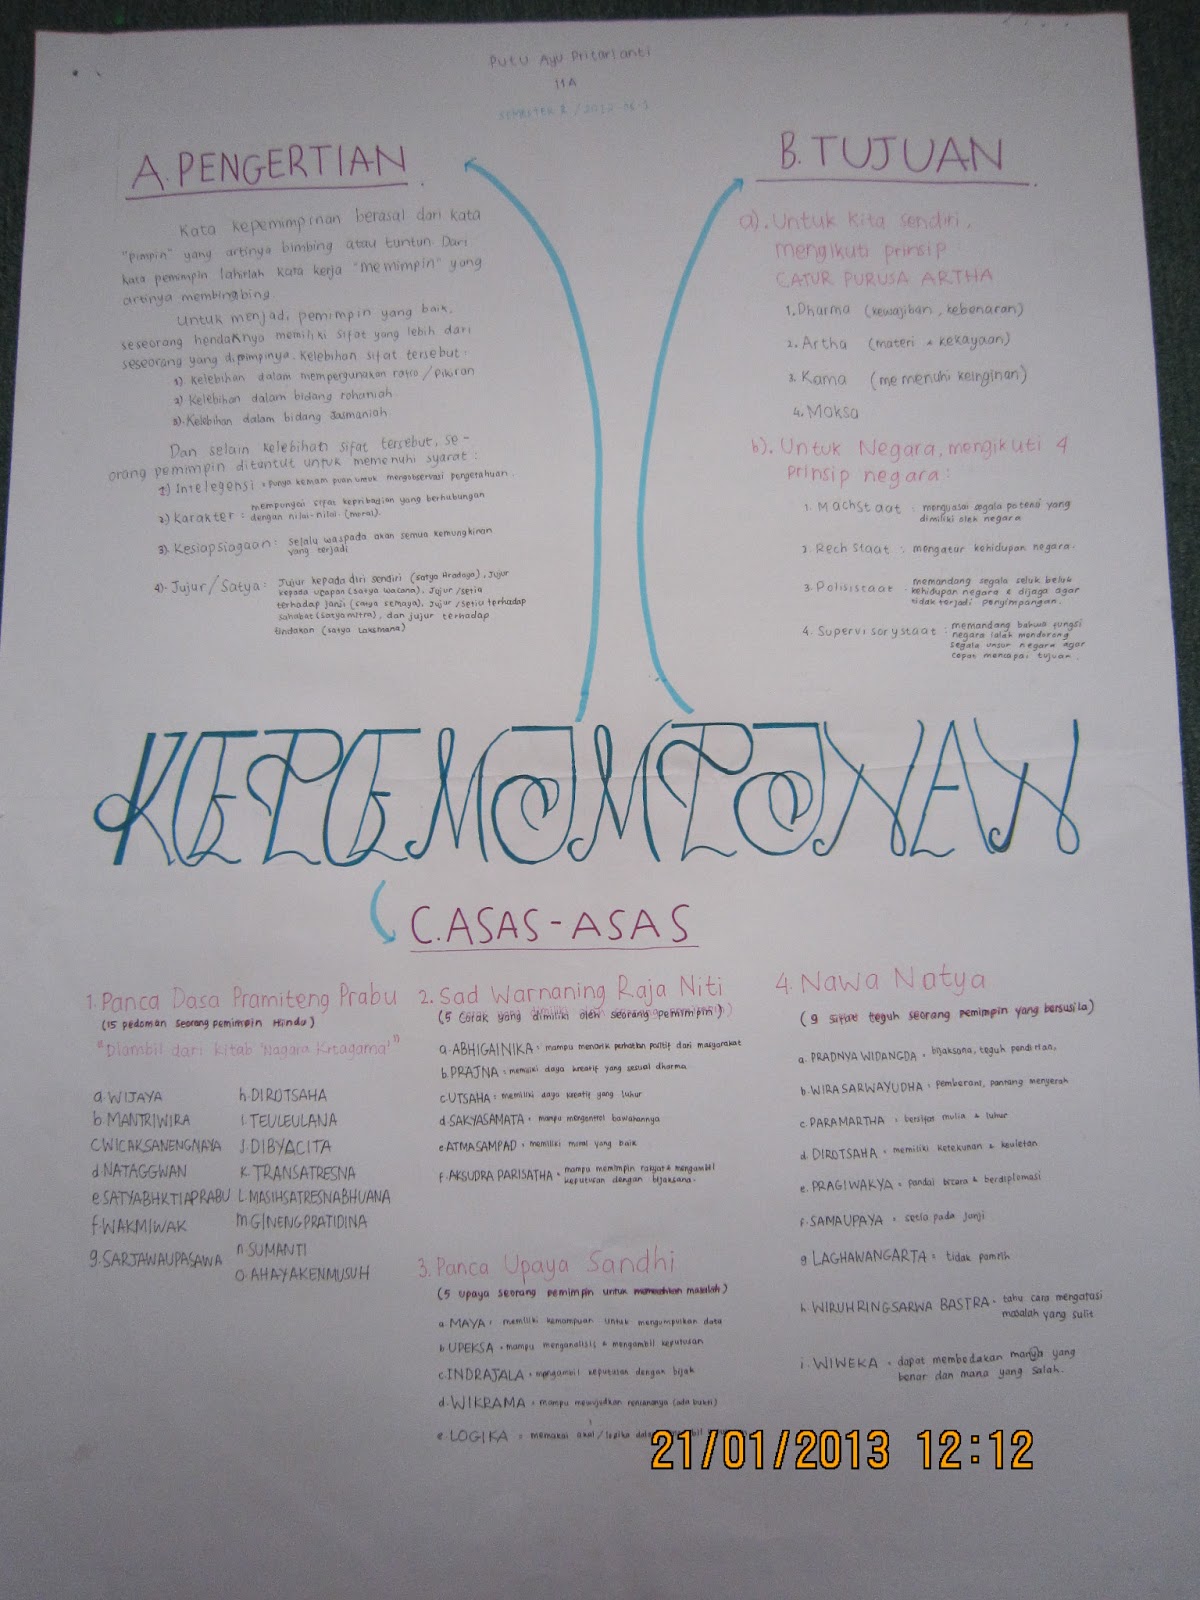 Putu Ayu Pritarianti
11A
A. PENGERTIAN
Kata kepemimpinan berasal dari kata
"pimpin" yang artinya bimbing atau tuntun. Dari
kata pemimpin lahirlah kata kerja "memimpin" yang
artinya membingbing.
Untuk menjadi pemimpin yang baik,
seseorang hendaknya memiliki sifat yang lebih dari
seseorang yang dipimpinya. Kelebihan sifat tersebut:
1). Kelebihan dalam mempergunakan ratio/pikiran
2) Kelebihan dalam bidang rohaniah
3). Kelebihan dalam bidang Jasmaniah
Dan selain kelebihan sifat tersebut, se-
orang pemimpin dituntut untuk memenuhi syarat:
1) Intelegensi = punya kemampuan untuk mengobservasi pengetahuan.
2) Karakter : mempunyai sifat kepribadian yang berhubungan
dengan nilai-nilai. (moral).
3). Kesiapsiagaan : Selalu waspada akan semua kemungkinan
yang terjadi
4). Jujur/Satya : Jujur kepada diri sendiri (satya Hradaya), Jujur
kepada ucapan (satya wacana), Jujur/setia
terhadap janji (satya semaya), Jujur/setia terhadap
sahabat (satya mitra), dan jujur terhadap
tindakan (satya Laksmana)
B. TUJUAN
a). Untuk kita sendiri,
mengikuti prinsip
CATUR PURUSA ARTHA
1. Dharma (kewajiban, kebenaran)
2. Artha (materi & kekayaan)
3. Kama (memenuhi keinginan)
4. Moksa
b). Untuk Negara, mengikuti 4
prinsip negara:
1. Machstaat : menguasai segala potensi yang
dimiliki oleh negara
2. Rech staat : mengatur kehidupan negara.
3. Polisistaat : memandang segala seluk beluk
kehidupan negara & dijaga agar
tidak terjadi penyimpangan.
4. Supervisorystaat : memandang bahwa fungsi
negara ialah mendorong
segala unsur negara agar
cepat mencapai tujuan.
KEPEMIMPINAN
C. ASAS-ASAS
1. Panca Dasa Pramiteng Prabu
(15 pedoman seorang pemimpin Hindu)
"Diambil dari kitab 'Nagara Kertagama'"
a. WIJAYA
b. MANTRIWIRA
c WICAKSANENGNAYA
d. NATAGGWAN
e SATYABHKTIAPRABU
f. WAKMIWAK
g. SARJAWAUPASAWA
h. DIROTSAHA
i. TEULEULANA
J. DIBYACITA
K. TRANSATRESNA
L. MASIHSATRESNABHUANA
m GINENGPRATIDINA
n. SUMANTI
O. AHAYAKENMUSUH
2. Sad Warnaning Raja Niti
(5 Corak yang dimiliki oleh seorang pemimpin)
a. ABHIGAINIKA = mampu menarik perhatian positif dari masyarakat
b. PRAJNA = memiliki daya kreatif yang sesuai dharma
c. UTSAHA = memiliki daya kreatif yang luhur
d SAKYASAMATA = mampu mengontrol bawahannya
e. ATMASAMPAD = memiliki moral yang baik
f. AKSUDRA PARISATHA = mampu memimpin rakyat & mengambil
keputusan dengan bijaksana.
3. Panca Upaya Sandhi
(5 upaya seorang pemimpin untuk memecahkan masalah)
a MAYA : memiliki kemampuan untuk mengumpulkan data
b UPEKSA = mampu menganalisis & mengambil keputusan
c. INDRAJALA = mengambil keputusan dengan bijak
d. WIKRAMA = mampu mewujudkan rencananya (ada bukti)
e. LOGIKA = memakai akal/logika
4. Nawa Natya
(9 sifat teguh seorang pemimpin yang bersusila)
a. PRADNYA WIDANGDA = bijaksana, teguh pendirian,
b. WIRA SARWAYUDHA = pemberani, pantang menyerah
c. PARAMARTHA = bersifat mulia & luhur
d. DIROTSAHA = memiliki ketekunan & keuletan
e. PRAGIWAKYA = pandai bicara & berdiplomasi
f. SAMAUPAYA = setia pada janji
g LAGHAWANGARTA = tidak pamrih
h. WIRUHRINGSARWA BASTRA = tahu cara mengatasi
masalah yang sulit
i. WIWEKA = dapat membedakan mana yang
benar dan mana yang salah.
21/01/2013 12:12